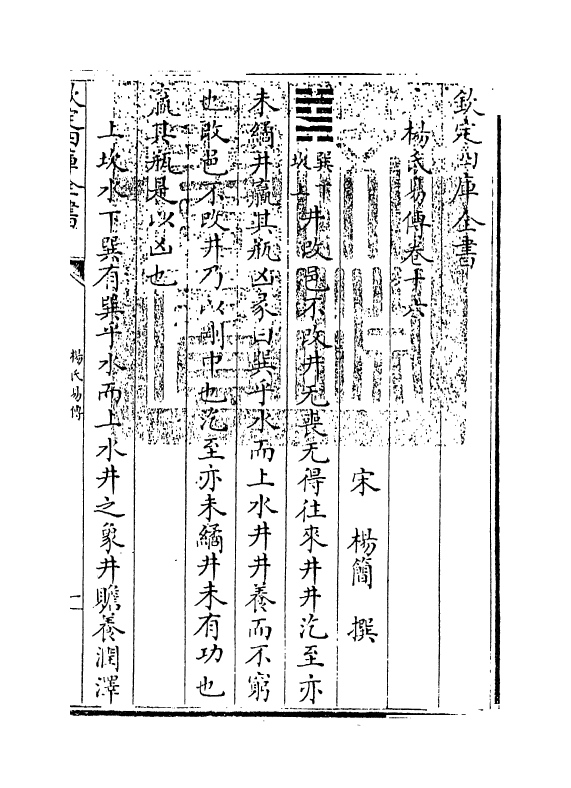 欽定四庫全書
楊氏易傳卷十六
宋 楊簡 撰
䷯巽下坎上井改邑不改井无喪无得往來井井汔至亦
未繘井羸其瓶凶彖曰巽乎水而上水井井養而不窮
也改邑不改井乃以剛中也汔至亦未繘井未有功也
羸其瓶是以凶也
上坎水下巽有巽乎水而上水井之象井贍養潤澤
欽定四庫全書
楊氏易傳
一